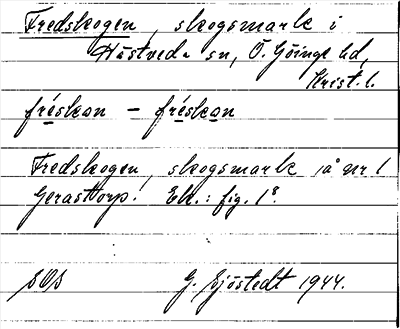 Fredskogen, skogsmark i
Hästveda sn, Ö. Göinge hd,
Krist. l.
fréskan – fréskan
Fredskogen, skogsmark på nr 1
Gerastorp! Ek.: fig. 1⁸.
SOS G. Sjöstedt 1944.